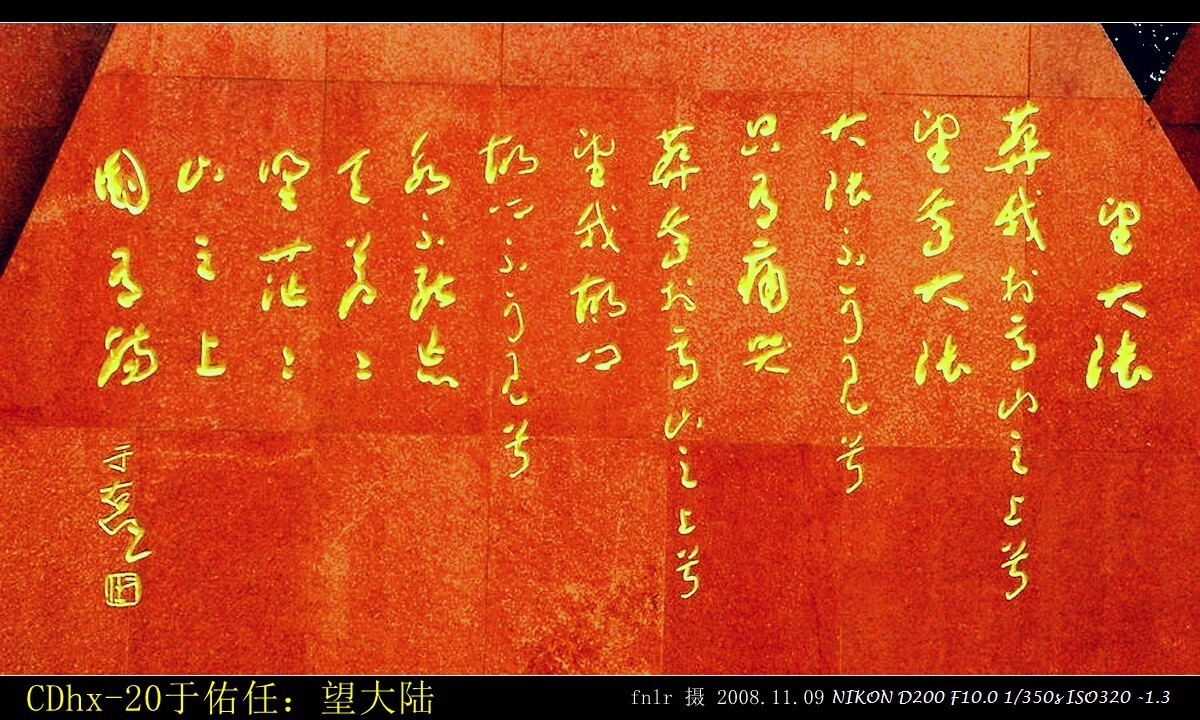 望大陸
葬我於高山之上兮
望我大陸
大陸不可見兮
只有痛哭
葬我於高山之上兮
望我故鄉
故鄉不可見兮
永不能忘
天蒼々
野茫々
山之上
國有殤
于右任
CDhx-20于佑任：望大陆
fnlr 摄 2008.11.09 NIKON D200 F10.0 1/350s ISO320 -1.3